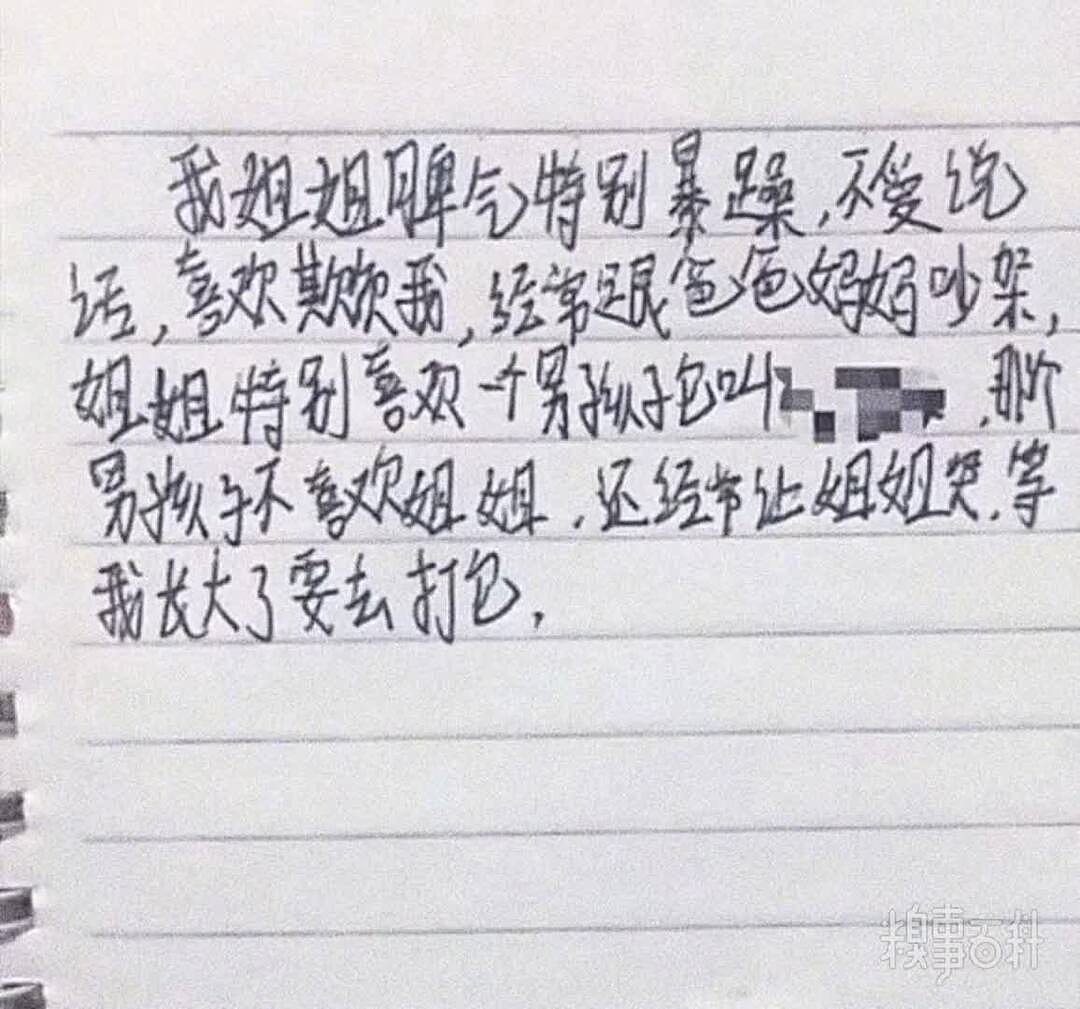 我姐姐脾气特别暴躁，不爱说
话，喜欢欺负我，经常跟爸爸妈妈吵架，
姐姐特别喜欢一个男孩子包叫，那个
男孩子不喜欢姐姐，还经常让姐姐哭，等
我长大了要去打包，
糗事百科